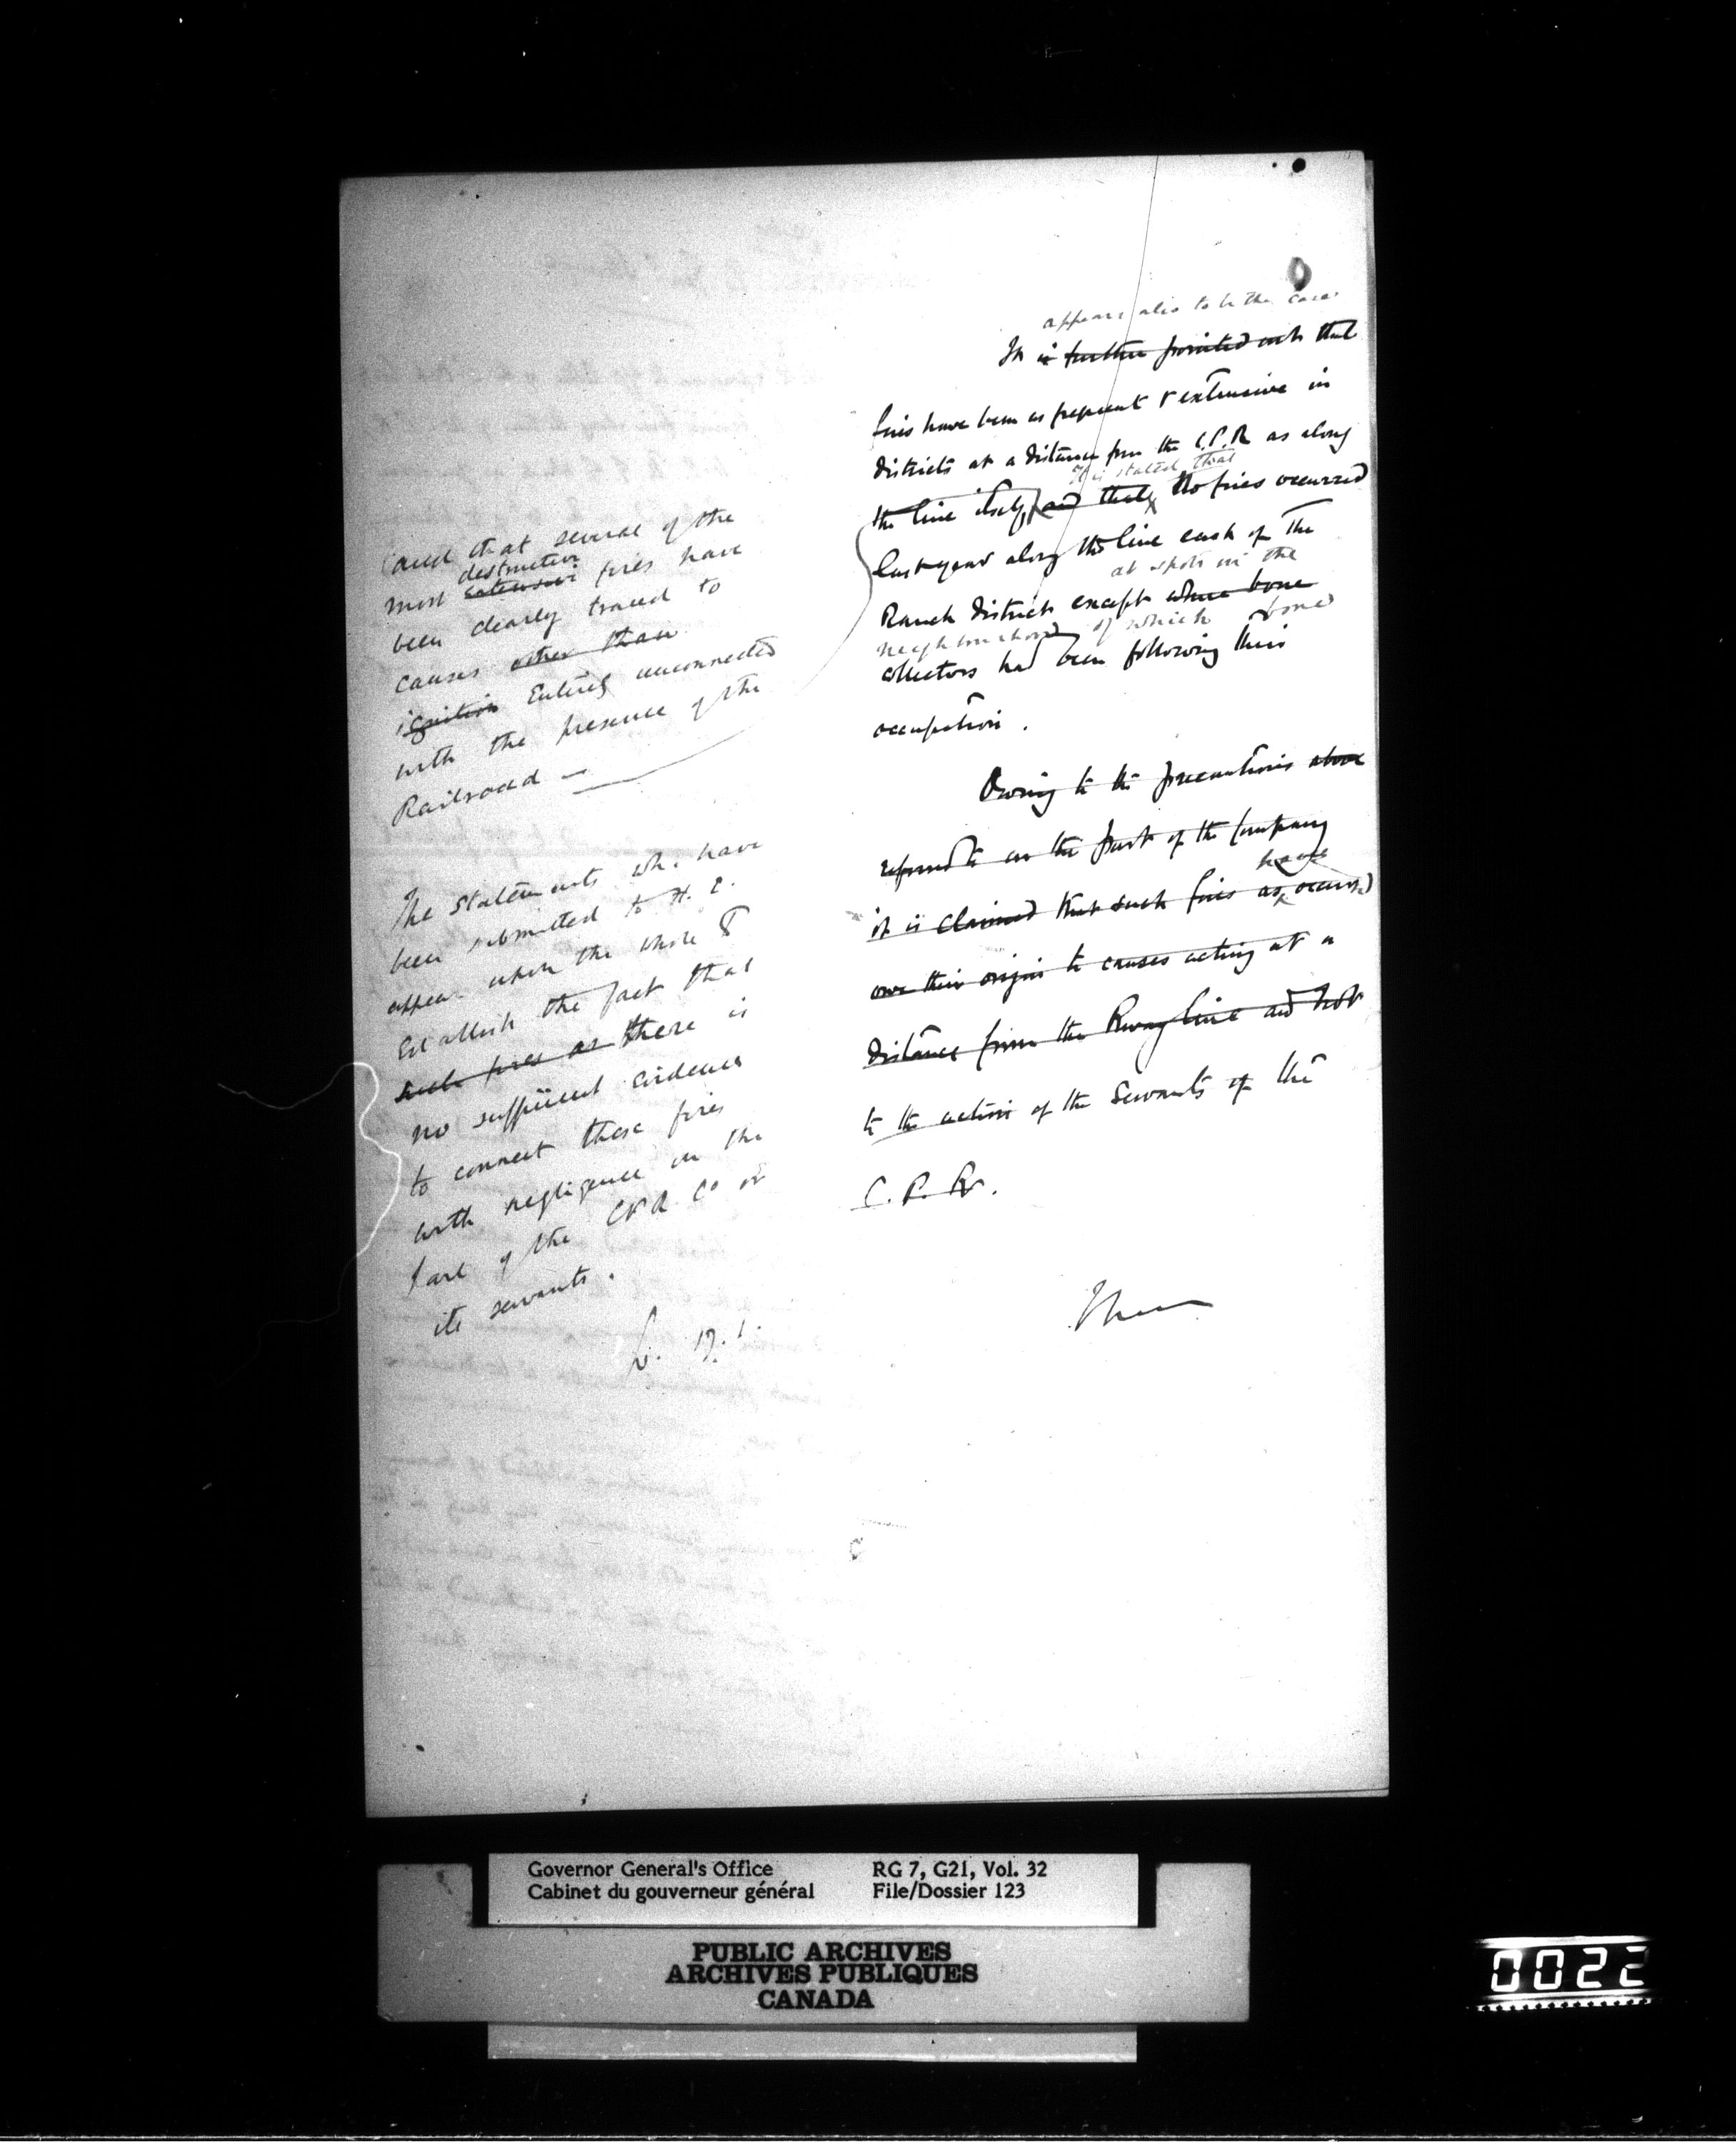 appears also to be the case
It is further pointed out that
fires have been as frequent & extensive in
districts at a distance from the C.P.R as along
It is stated that
the line itself, and that No fires occurred
last year along the line east of the
at spots in the
Ranch District except where bone
neighbourhood of which bone
collectors had been following their
occupation.
Owing to the precautions above
referred to on the part of the Company
have
it is claimed that such fires as occurred
owe their origin to causes acting at a
distance from the Rway line and not
to the action of the Servants of the
C. P. R.
(and that several of the
destructive
most extensive fires have
been clearly traced to
causes other than
ignition Entirely unconnected
with the presence of the
Railroad —
The Statements wh. have
been submitted to H. E.
appear upon the whole to
Establish the fact that
such fires as there is
no sufficient evidence
to connect these fires
with negligence on the
part of the CPR Co or
its servants.
Governor General's Office
Cabinet du gouverneur général
RG 7, G21, Vol. 32
File/Dossier 123
PUBLIC ARCHIVES
ARCHIVES PUBLIQUES
CANADA
0022